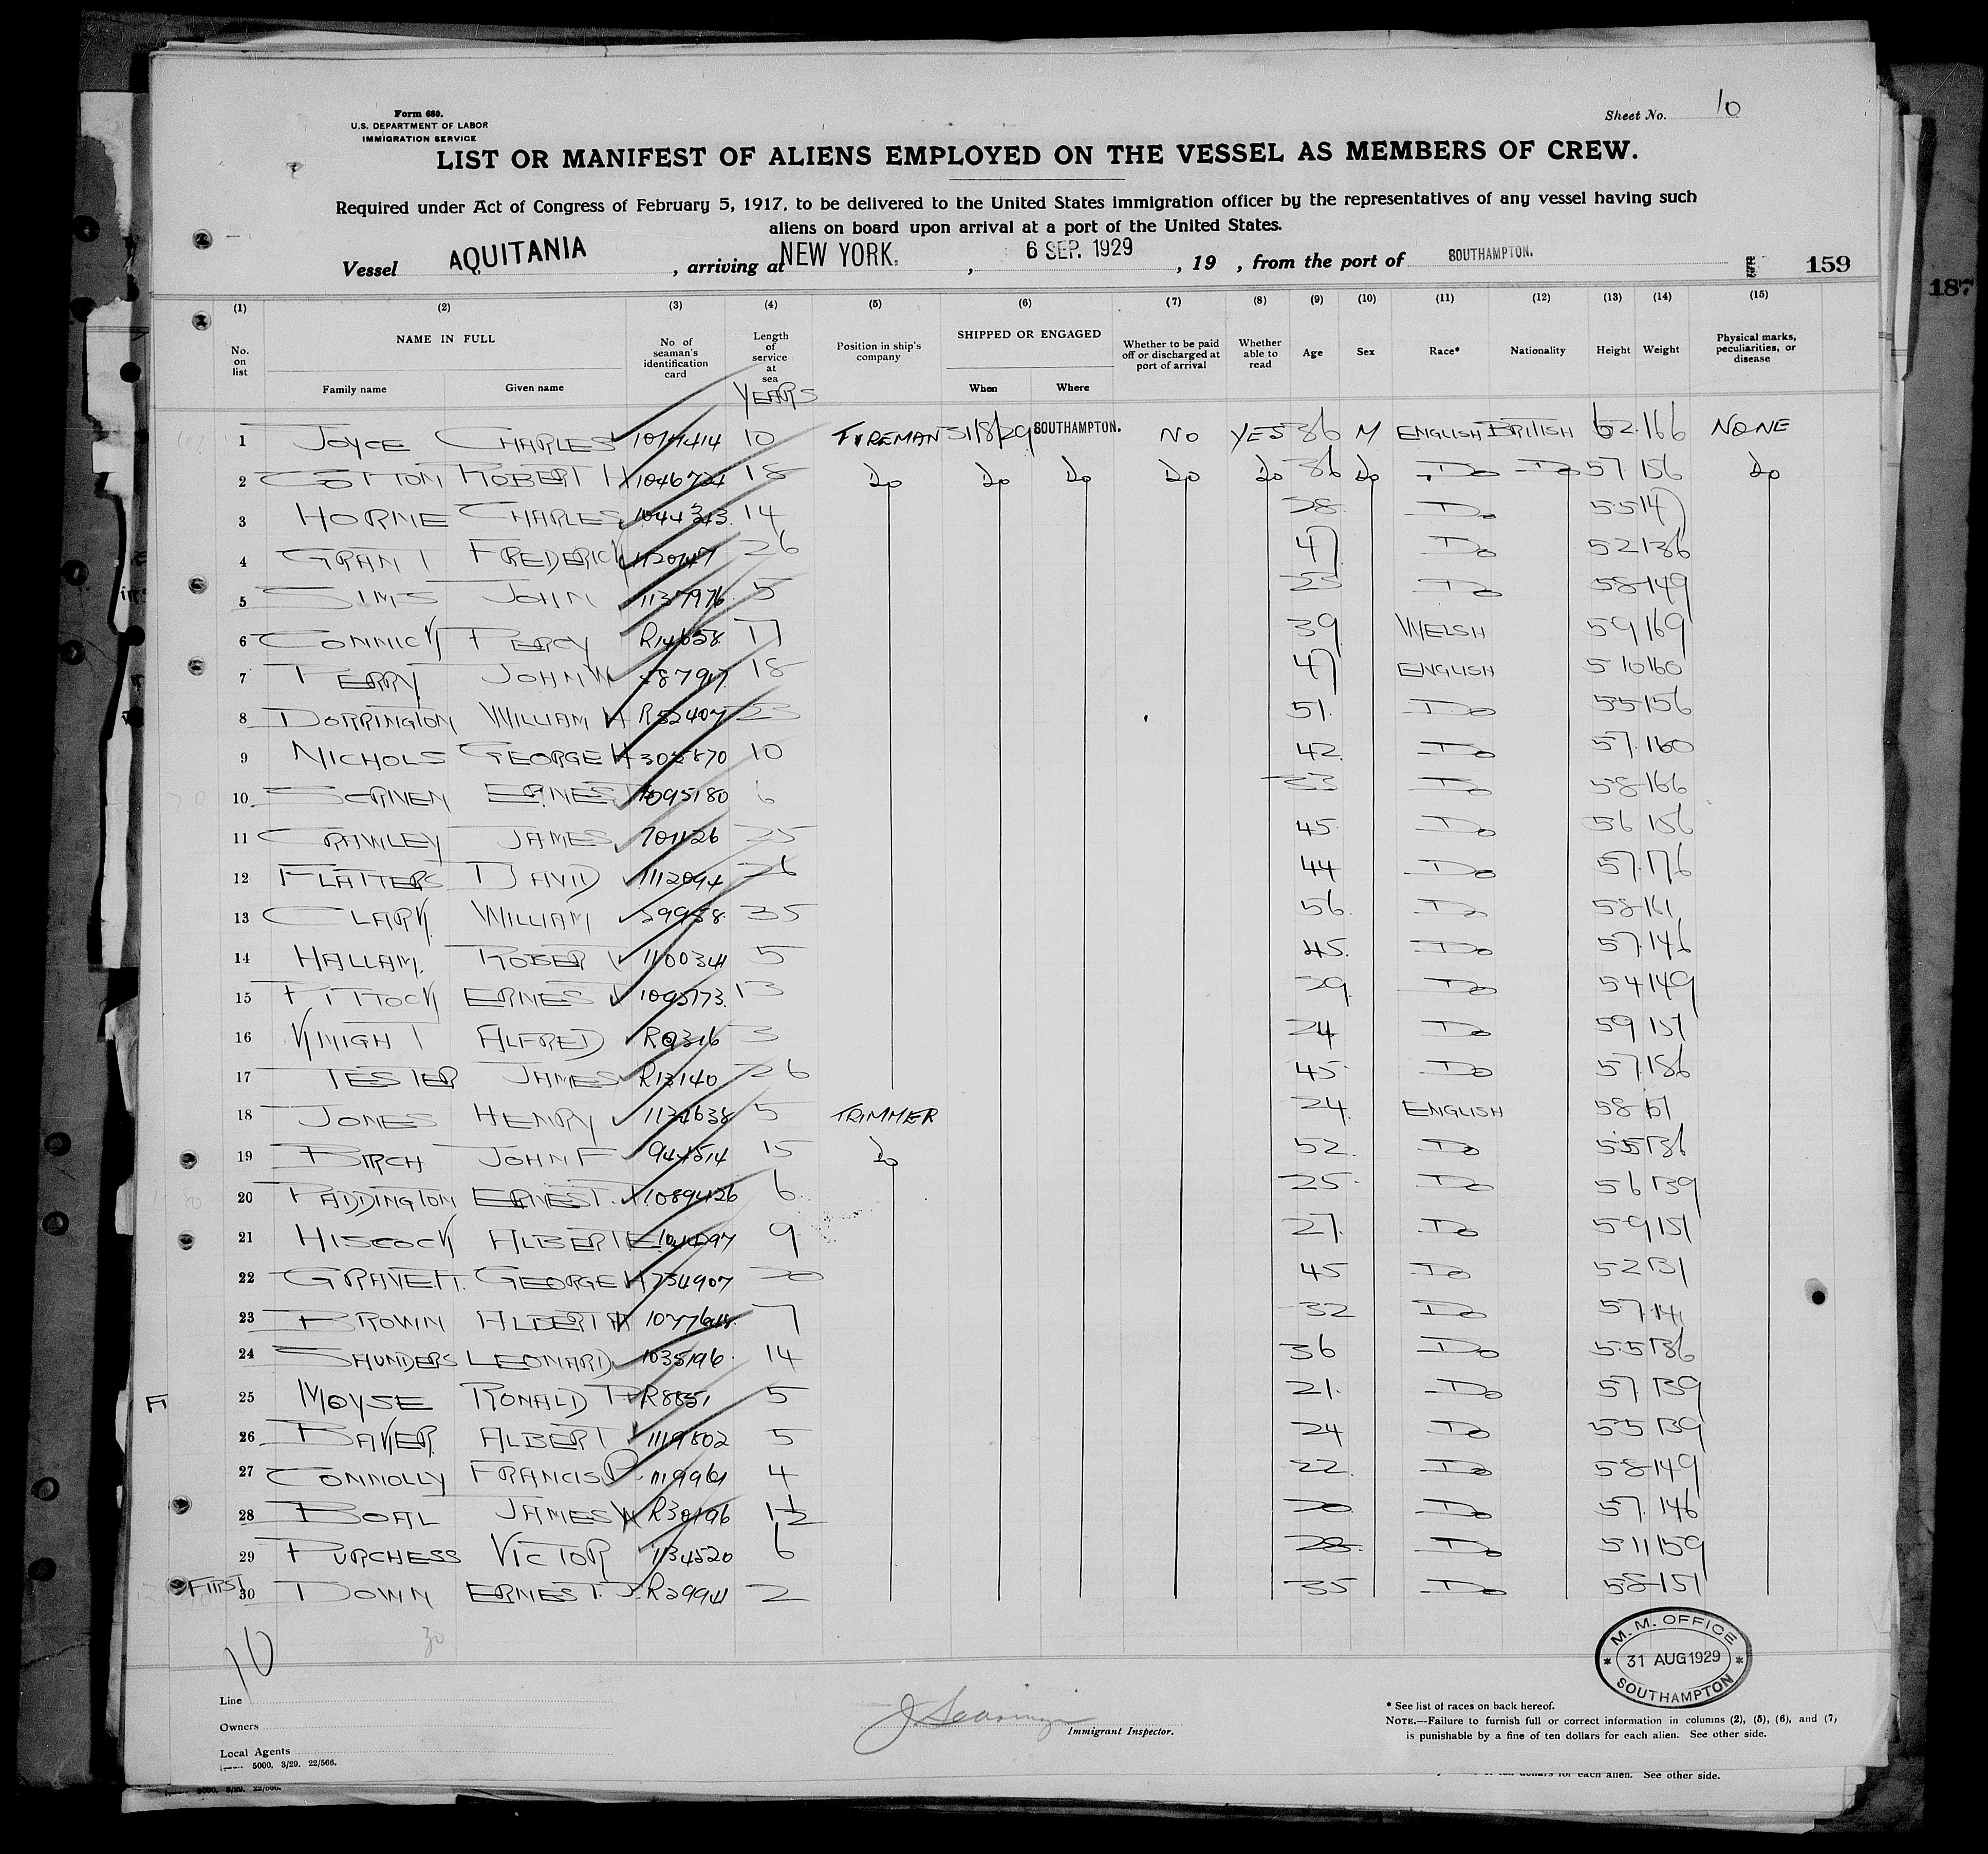 Form 680.
U.S. DEPARTMENT OF LABOR
IMMIGRATION SERVICE
Sheet No. 10
LIST OR MANIFEST OF ALIENS EMPLOYED ON THE VESSEL AS MEMBERS OF CREW.
Required under Act of Congress of February 5, 1917, to be delivered to the United States immigration officer by the representatives of any vessel having such
aliens on board upon arrival at a port of the United States.
Vessel AQUITANIA, arriving at NEW YORK, 6 SEP. 1929, 19 , from the port of SOUTHAMPTON. 159
187
(1) (2) (3) (4) (5) (6) (7) (8) (9) (10) (11) (12) (13) (14) (15)
No. on list NAME IN FULL Family name Given name No of seaman's identification card Length of service at sea YEARS Position in ship's company SHIPPED OR ENGAGED When Where Whether to be paid off or discharged at port of arrival Whether able to read Age Sex Race* Nationality Height Weight Physical marks, peculiarities, or disease
1 JOYCE CHARLES 10 FIREMAN 31/8/29 SOUTHAMPTON. NO YES 36 M ENGLISH BRITISH 166 NONE
2 COTTON ROBERT H 1046724 18 Do Do Do Do Do 36 Do Do Do 57 156 Do
3 HORNE CHARLES 1044313 14 38 Do 55 147
4 GRANT FREDERICK 26 47 Do 52 136
5 SIMS JOHN 1137976 5 23 Do 58 149
6 CONNICK PERCY R14658 17 39 WELSH 59 169
7 PERRY JOHN W 18 47 ENGLISH 510 160
8 DORRINGTON WILLIAM H R52407 23 51 Do 55 156
9 NICHOLS GEORGE H 10 42 Do 57 160
10 SCRIVEN ERNEST 1095180 6 33 Do 58 166
11 CRAWLEY JAMES 701126 25 45 Do 56 156
12 FLATTERS DAVID 1112094 26 44 Do 57 176
13 CLARK WILLIAM 35 56 Do 58 161
14 HALLAM. ROBERT 1100341 5 45. Do 57 146
15 PITTOCK ERNEST 1095173 13 39 Do 54 149
16 KNIGHT ALFRED R9316 3 24 Do 59 151
17 TESTER JAMES R13140 26 45 Do 57 186
18 JONES HENRY 1134638 5 TRIMMER 24 ENGLISH 58
19 BIRCH JOHN F 944514 15 Do 52 Do 55 136
20 PADDINGTON ERNEST. 1089426 6 25 Do 56 139
21 HISCOCK ALBERT E 9 27 Do 59 151
22 GRAVETT. GEORGE H 734907 20 45 Do 52 131
23 BROWN ALBERT 7 32 Do 57 141
24 SAUNDERS LEONARD 1035196 14 36 Do 55 136
25 MOYSE RONALD R8851 5 21 Do 57 139
26 BAKER ALBERT 1119802 5 24 Do 55 139
27 CONNOLLY FRANCIS P 1119961 4 22 Do 58 149
28 BOAL JAMES W R30196 1½ 20 Do 57 146
29 PURCHESS VICTOR 1134520 6 28 Do 511 159
FIRST 30 DOWN ERNEST. J. R29941 2 35 Do 58 151
10
30
M. M. OFFICE
31 AUG 1929
SOUTHAMPTON
Line
Owners
Local Agents
5000. 3/29. 22/566.
Immigrant Inspector.
* See list of races on back hereof.
NOTE.—Failure to furnish full or correct information in columns (2), (5), (6), and (7)
is punishable by a fine of ten dollars for each alien. See other side.
5000. 3/29. 22/566.
for each alien. See other side.